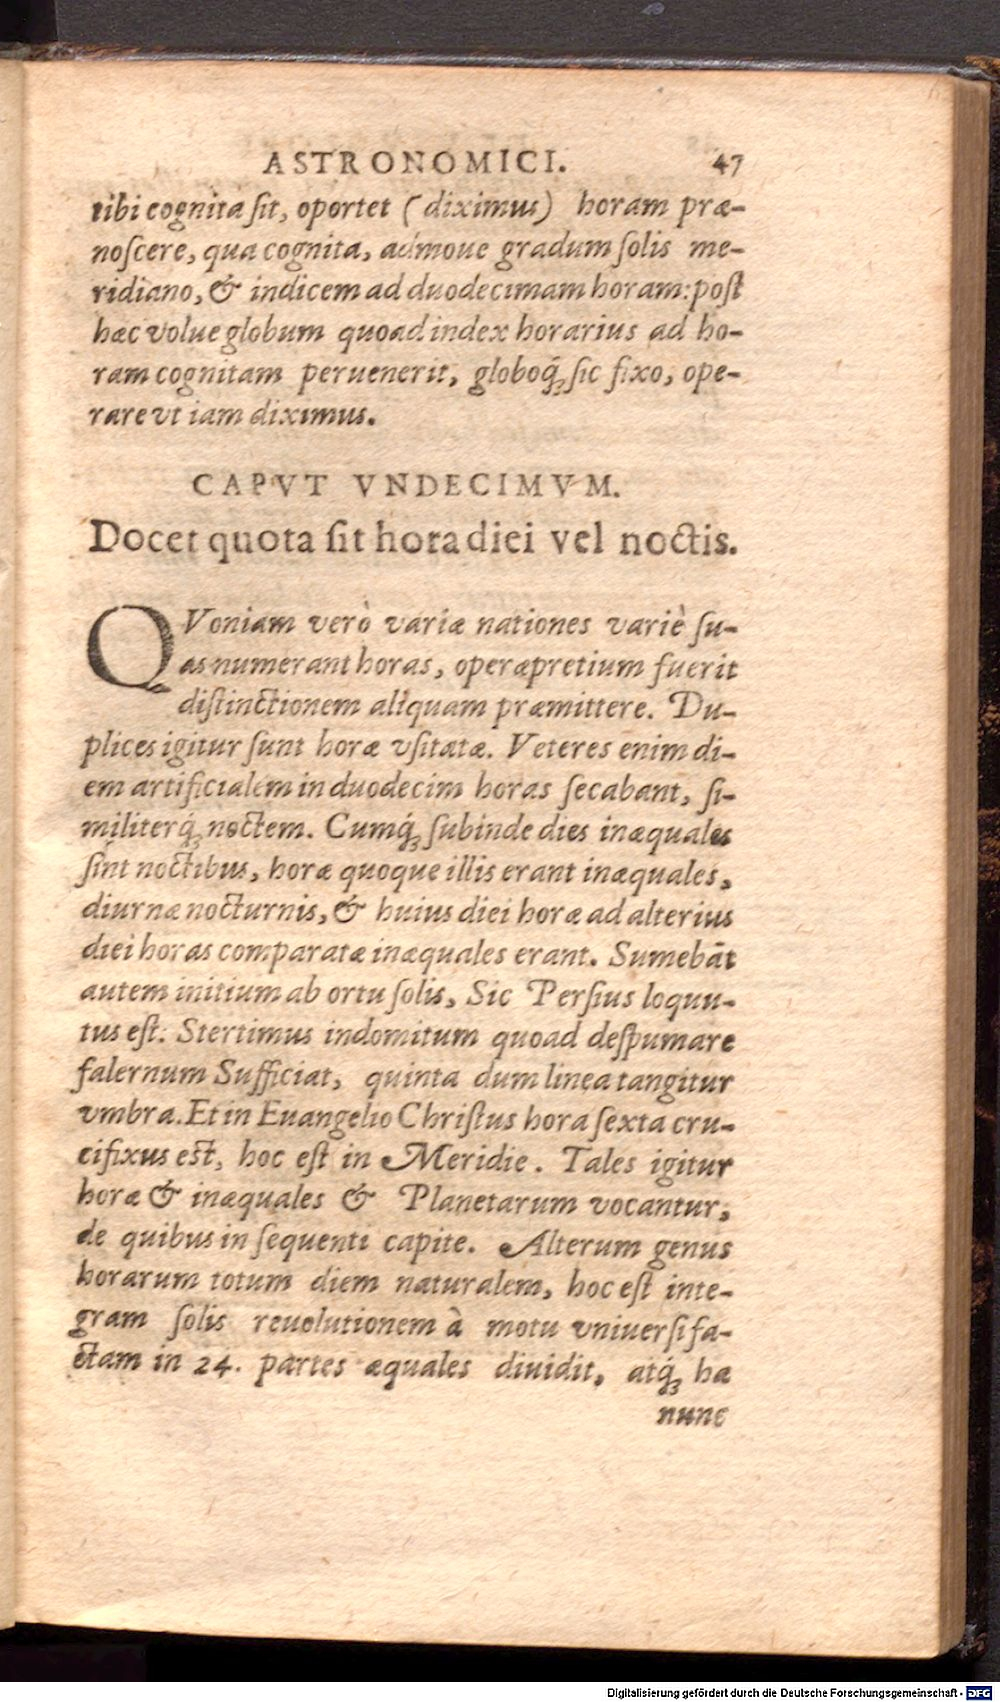 ASTRONOMICI. 47
tibi cognita ſit, oportet (diximus) horam præ-
noſcere, qua cognita, admoue gradum ſolis me-
ridiano, & indicem ad duodecimam horam: poſt
hæc volue globum quoad index horarius ad ho-
ram cognitam peruenerit, globoq́; ſic fixo, ope-
rare vt iam diximus.
CAPVT VNDECIMVM.
Docet quota ſit hora diei vel noctis.
QVoniam verò variæ nationes variè ſu-
as numerant horas, operæpretium fuerit
diſtinctionem aliquam præmittere. Du-
plices igitur ſunt horæ vſitatæ. Veteres enim di-
em artificialem in duodecim horas ſecabant, ſi-
militerq́; noctem. Cumq́; ſubinde dies inæquales
ſint noctibus, horæ quoque illis erant inæquales,
diurnæ nocturnis, & huius diei horæ ad alterius
diei horas comparatæ inæquales erant. Sumebāt
autem initium ab ortu ſolis, Sic Perſius loquu-
tus eſt: Stertimus indomitum quoad deſpumare
falernum Sufficiat, quinta dum linea tangitur
vmbra. Et in Euangelio Chriſtus hora ſexta cru-
cifixus eſt, hoc eſt in Meridie. Tales igitur
horæ & inæquales & Planetarum vocantur,
de quibus in ſequenti capite. Alterum genus
horarum totum diem naturalem, hoc eſt inte-
gram ſolis reuolutionem à motu vniuerſi fa-
ctam in 24. partes æquales diuidit, atq́; hæ
nunc
Digitalisierung gefördert durch die Deutsche Forschungsgemeinschaft - DFG